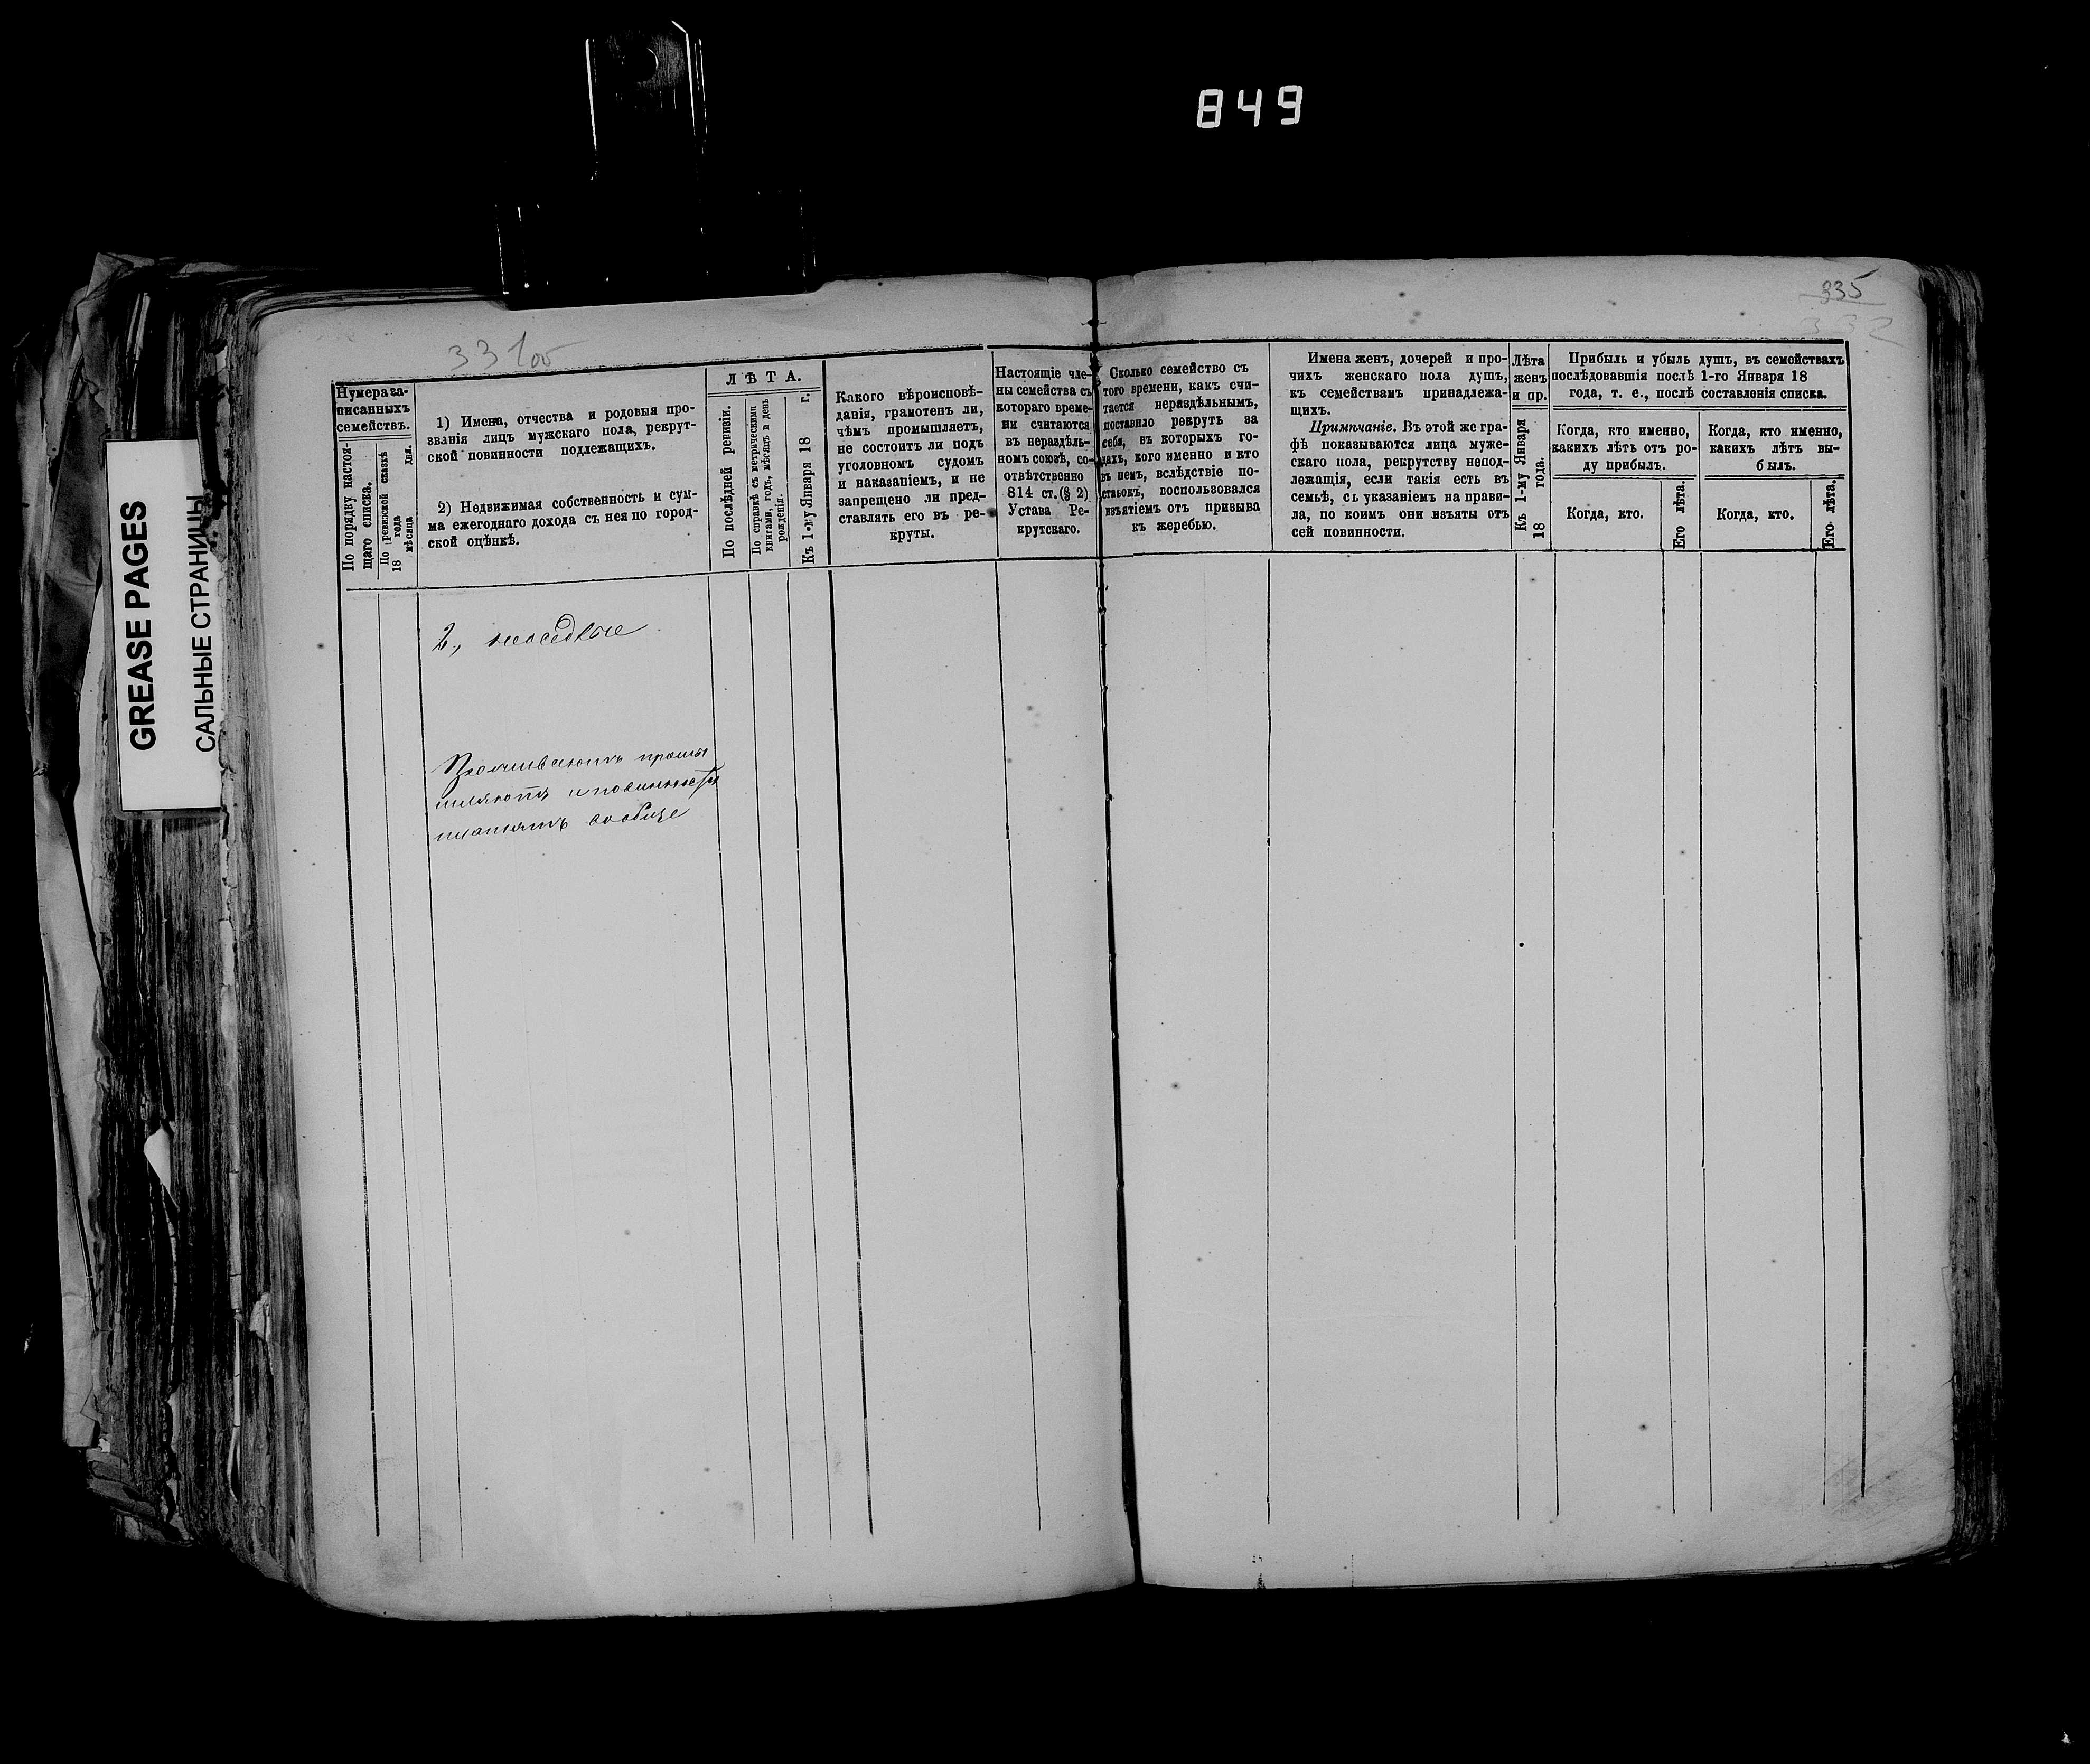 849
335
332
331об
GREASE PAGES
САЛЬНЫЕ СТРАНИЦЫ
Нумера за-
писанныхъ
семействъ.
По порядку настоя-
щаго списка.
По ревизской сказкѣ
18 года
мѣсяца дня.
1) Имена, отчества и родовыя про-
званія лицъ мужскаго пола, рекрут-
ской повинности подлежащихъ.
2) Недвижимая собственность и сум-
ма ежегоднаго дохода съ нея по город-
ской оцѣнкѣ.
ЛѢТА.
По послѣдней ревизіи.
По справкѣ съ метрическими
книгами, годъ, мѣсяцъ и день
рожденія.
Къ 1-му Января 18 г.
Какого вѣроисповѣ-
данія, грамотенъ ли,
чѣмъ промышляетъ,
не состоитъ ли подъ
уголовном судомъ
и наказаніемъ, и не
запрещено ли пред-
ставлять его въ ре-
круты.
Настоящіе чле-
ны семейства съ
котораго време-
ни считаются
въ нераздѣль-
номъ союзѣ, со-
отвѣтственно
814 ст. (§ 2)
Устава Ре-
крутскаго.
Сколько семейство съ
того времени, какъ счи-
тается нераздѣльнымъ,
поставило рекрутъ за
себя, въ которыхъ го-
дахъ, кого именно и кто
въ немъ, вслѣдствіе по-
ставокъ, воспользовался
изъятіемъ отъ призыва
къ жеребью.
Имена женъ, дочерей и про-
чихъ женскаго пола душъ,
къ семействамъ принадлежа-
щихъ.
Примѣчаніе. Въ этой же гра-
фѣ показываются лица муже-
скаго пола, рекрутству непод-
лежащія, если такія есть въ
семьѣ, съ указаніемъ на прави-
ла, по коимъ они изъяты отъ
сей повинности.
Лѣта
женъ
и пр.
Къ 1-му Января
18 года.
Прибыль и убыль душъ, въ семействахъ
послѣдовавшія послѣ 1-го Января 18
года, т. е., послѣ составленія списка.
Когда, кто именно,
какихъ лѣтъ отъ ро-
ду прибылъ.
Когда, кто.
Его лѣта.
Когда, кто именно,
какихъ лѣтъ вы-
былъ.
Когда, кто.
Его лѣта.
2, неоседлые
Проживаютъ промы
шляютъ и повинности
платятъ вообще